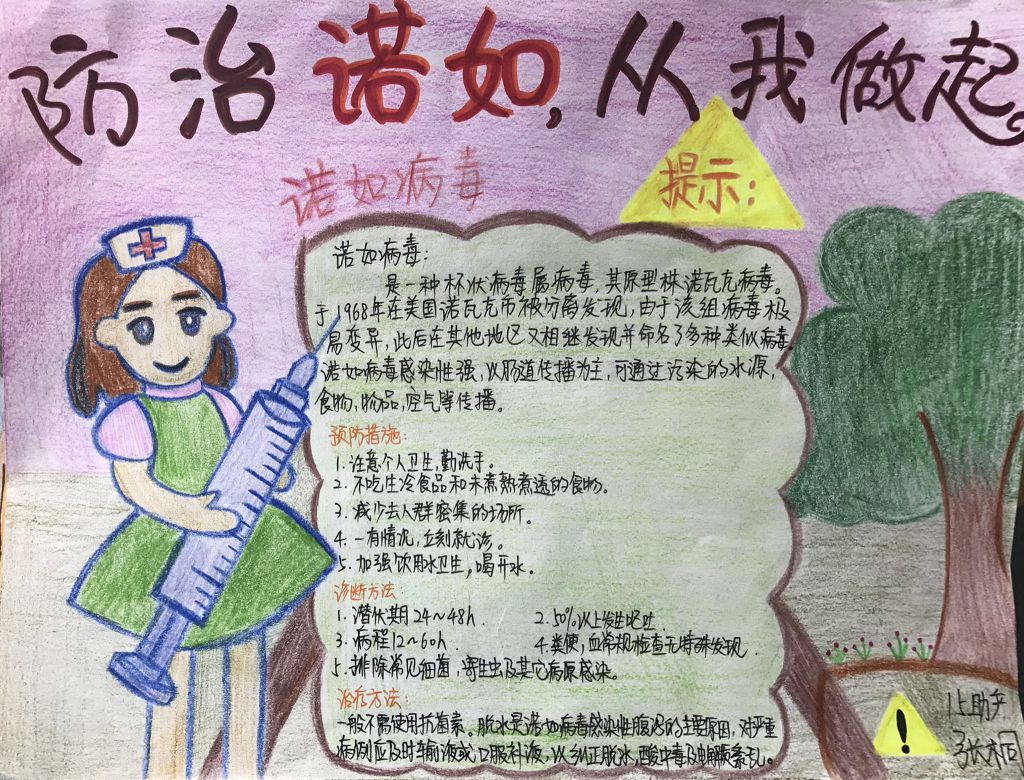 防治诺如,从我做起。
诺如病毒
提示:
诺如病毒:
是一种杯状病毒属病毒,其原型株诺瓦克病毒。
于1968年在美国诺瓦克市被分离发现,由于该组病毒极
易变异,此后在其他地区又相继发现并命名了多种类似病毒
诺如病毒感染性强,以肠道传播为主,可通过污染的水源,
食物,物品,空气等传播。
预防措施:
1.注意个人卫生,勤洗手。
2.不吃生冷食品和未煮熟煮透的食物。
3.减少去人群密集的场所。
4.一有情况,立刻就诊。
5.加强饮用水卫生,喝开水。
诊断方法
1.潜伏期24~48h.
2.50%以上发生呕吐.
3.病程12~60h.
4.粪便,血常规检查无特殊发现.
5.排除常见细菌,寄生虫及其它病原感染。
治疗方法:
一般不需使用抗菌素。脱水是诺如病毒感染性腹泻的主要原因,对严重
病例应及时输液或口服补液,以纠正脱水,酸中毒及电解质紊乱。
!
15上助产